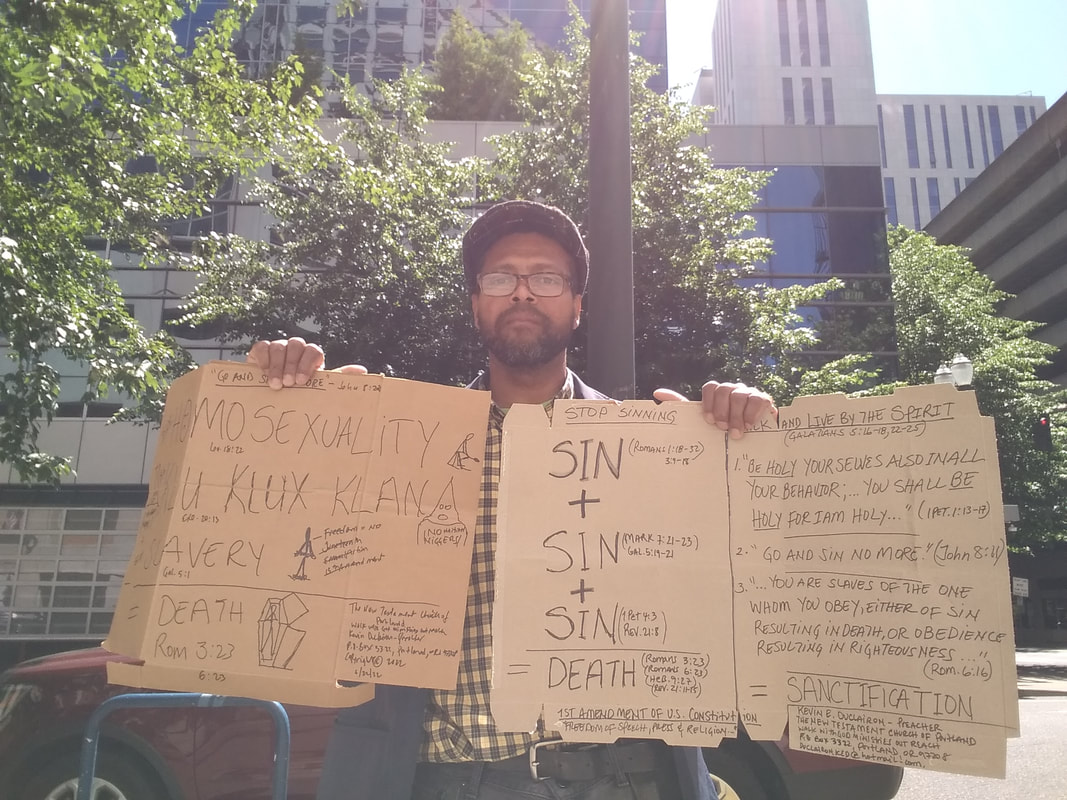 "GO AND S ORE" - John 8:
MOSEXUALITY
Lev. 18:22
U KLUX KLAN
AVERY
Gal. 5:1
Freedom = NO
Juneteenth
Emancipation
13th Amendment
(NO nation
NIGGERS)
= DEATH
Rom 3:23
6:23
The New Testament Church of
Portland
P.O. Box 3332, Portland, OR 97208
Copyright © 2022
STOP SINNING
SIN (Romans 1:18-32)
3:9-18
+
SIN (MARK 7:21-23)
GAL. 5:19-21
+
SIN (1 Pet 4:3
Rev. 21:8)
= DEATH (Romans 3:23)
(Romans 6:23)
(HEB. 9:27)
(Rev. 21:11-15)
1ST AMENDMENT OF U.S. Constitution
"FREEDOM OF SPEECH, PRESS & RELIGION..."
AND LIVE BY THE SPIRIT
(GALATIANS 5:16-18, 22-25)
1. "BE HOLY YOURSELVES ALSO IN ALL
YOUR BEHAVIOR;... YOU SHALL BE
HOLY FOR I AM HOLY..." (1 PET. 1:13-17)
2. "GO AND SIN NO MORE." (John 8:11)
3. "...YOU ARE SLAVES OF THE ONE
WHOM YOU OBEY, EITHER OF SIN
RESULTING IN DEATH, OR OBEDIENCE
RESULTING IN RIGHTEOUSNESS..."
(Rom. 6:16)
= SANCTIFICATION
KEVIN E. DUCLAIRON - PREACHER
THE NEW TESTAMENT CHURCH OF PORTLAND
WALK WITH GOD MINISTRIES OUT REACH
P.O BOX 3332, PORTLAND, OR 97208
DUCLAIRONKED@hotmail.com